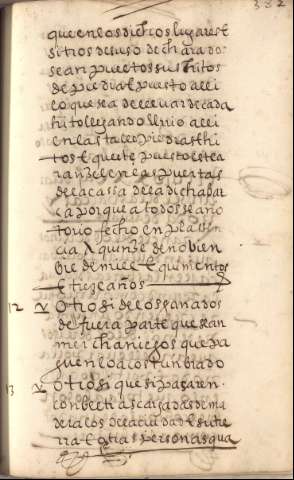 382
que en los dichos lugares E
sitios de suso declarados
sean puestos sus hitos
de piedra E puesto alli
lo que sea de llevar de cada
hito llegando llevio alli
en las tales piedras E hi
tos E que este puesto este a
ranzel en las puertas
de la cassa de la dicha bar
ca porque a todos sea no
torio fecho en plasen
cia A quinze de nobien
bre de mill E quinientos
E treze años
12 Otrosi de los ganados
de fuera parte que sean
merchaniegos que pa
guen lo acostunbrado
13 Otrosi que si pasaren
con bestias cargadas de ma
dera los de la ciudad E su tie
rra E otras personas qua